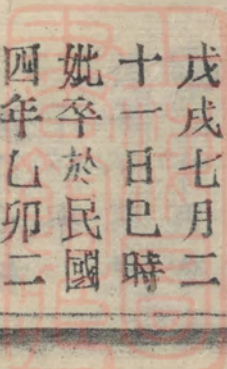 戊戌七月二
十一日巳時
妣卒於民國
四年乙卯二